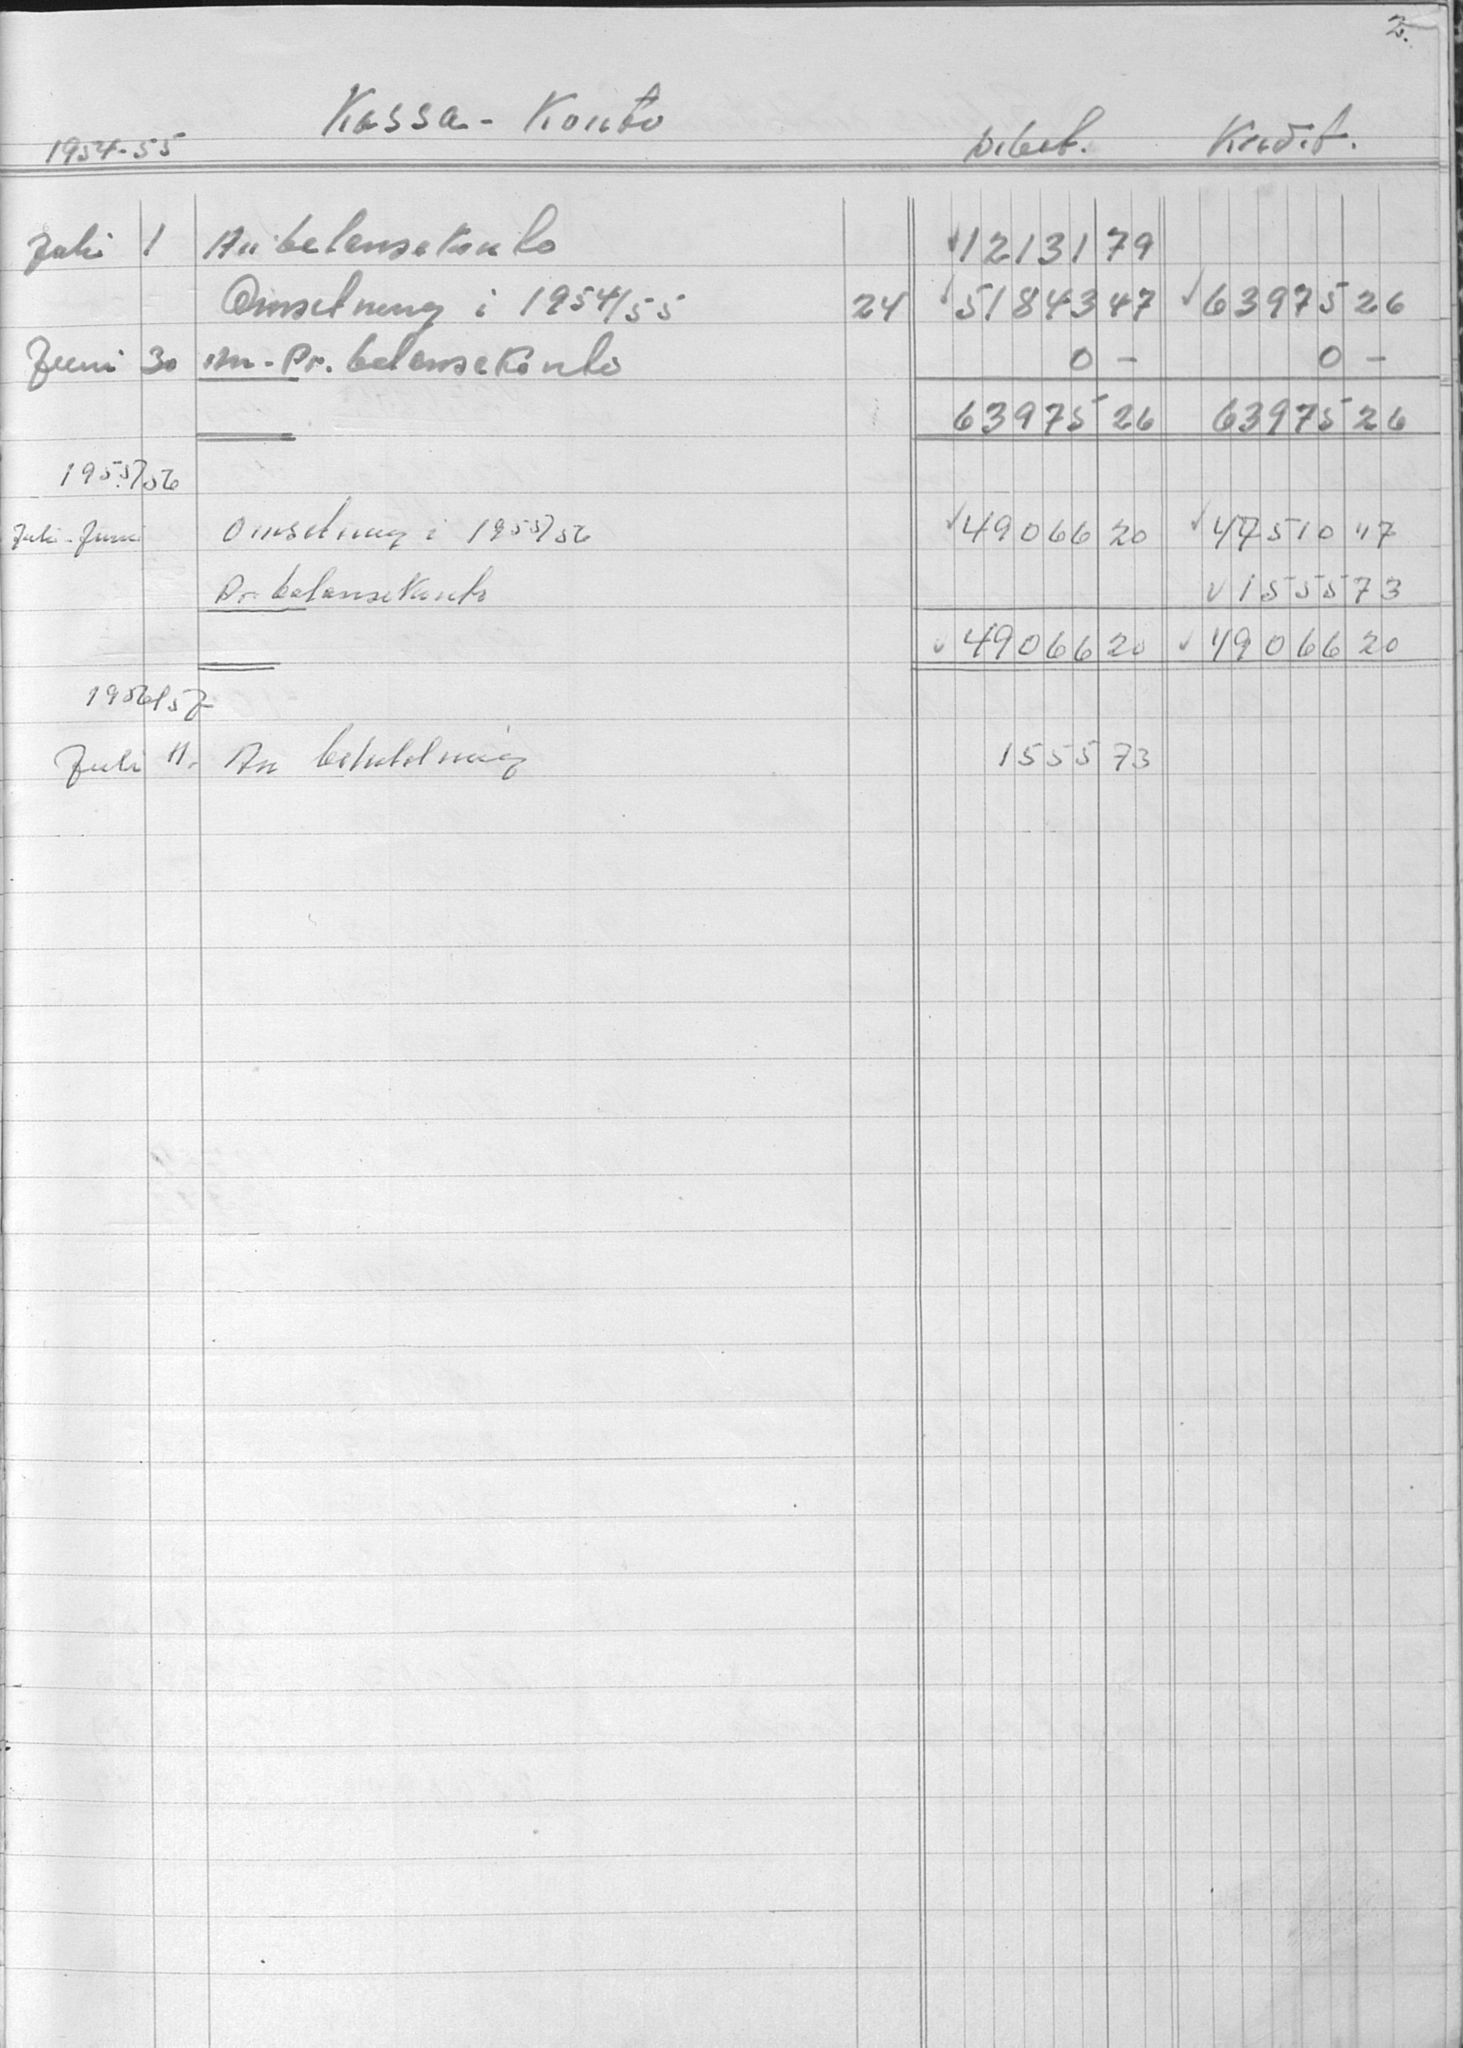 2.
Kassa-Konto
1954-55 Debet. Kredit.
Juli 1 An balansekonto 12131 79
Omsetning i 1954/55 24 51843 47 63975 26
Juni 30 Pr. balansekonto 0 - 0 -
63975 26 63975 26
1955/56
Juli-Juni Omsetning i 1955/56 49066 20 47510 47
Pr. balansekonto 1555 73
49066 20 49066 20
1956/57
Juli 1. An beholdning 1555 73